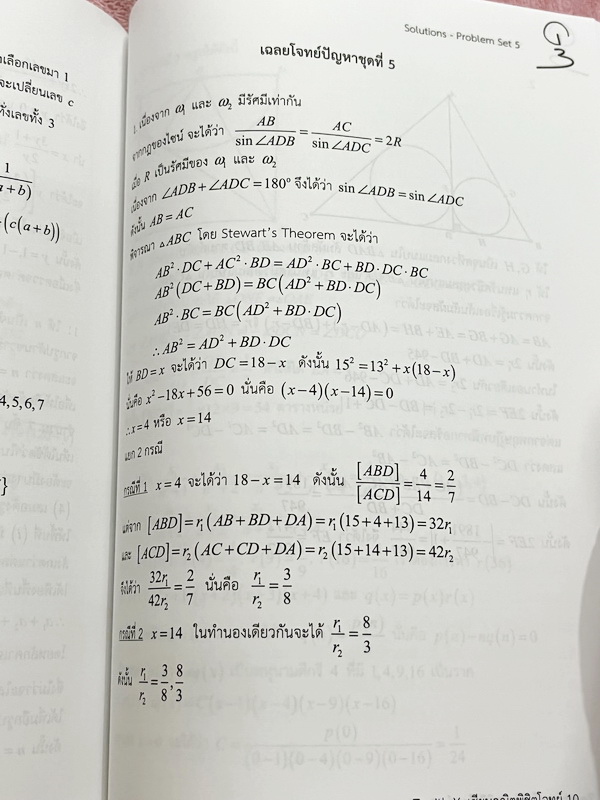 Solutions - Problem Set 5
เฉลยโจทย์ปัญหาชุดที่ 5
1. เนื่องจาก ω₁ และ ω₂ มีรัศมีเท่ากัน
จากกฎของไซน์ จะได้ว่า AB/sin∠ADB = AC/sin∠ADC = 2R
เมื่อ R เป็นรัศมีของ ω₁ และ ω₂
เนื่องจาก ∠ADB + ∠ADC = 180° จึงได้ว่า sin∠ADB = sin∠ADC
ดังนั้น AB = AC
พิจารณา △ABC โดย Stewart's Theorem จะได้ว่า
AB²·DC + AC²·BD = AD²·BC + BD·DC·BC
AB²(DC + BD) = BC(AD² + BD·DC)
AB²·BC = BC(AD² + BD·DC)
∴ AB² = AD² + BD·DC
ให้ BD = x จะได้ว่า DC = 18 − x ดังนั้น 15² = 13² + x(18 − x)
นั่นคือ x² − 18x + 56 = 0 นั่นคือ (x − 4)(x − 14) = 0
∴ x = 4 หรือ x = 14
แยก 2 กรณี
กรณีที่ 1 x = 4 จะได้ว่า 18 − x = 14 ดังนั้น [ABD]/[ACD] = 4/14 = 2/7
แต่จาก [ABD] = r₁(AB + BD + DA) = r₁(15 + 4 + 13) = 32r₁
และ [ACD] = r₂(AC + CD + DA) = r₂(15 + 14 + 13) = 42r₂
จึงได้ว่า 32r₁/42r₂ = 2/7 นั่นคือ r₁/r₂ = 3/8
กรณีที่ 2 x = 14 ในทำนองเดียวกันจะได้ r₁/r₂ = 8/3
ดังนั้น r₁/r₂ = 3/8, 8/3
เลือกเลขมา 1
จะเปลี่ยนเลข c
ทั้งเลขทั้ง 3
4, 5, 6, 7